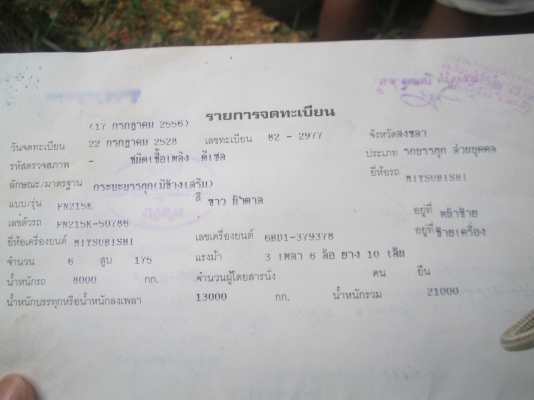 รายการจดทะเบียน
(17 กรกฎาคม 2556)
วันจดทะเบียน 22 กรกฎาคม 2528 เลขทะเบียน 82 - 2977 จังหวัดสงขลา
รหัสตรวจสภาพ - ชนิดเชื้อเพลิง ดีเซล ประเภท รถบรรทุก ส่วนบุคคล
ลักษณะ/มาตรฐาน กระบะบรรทุก(มีข้างเสริม) ยี่ห้อรถ MITSUBISHI
แบบ/รุ่น FN215K สี ขาว น้ำตาล
เลขตัวรถ FN215K-50786 อยู่ที่ หน้าซ้าย
ยี่ห้อเครื่องยนต์ MITSUBISHI เลขเครื่องยนต์ 6BD1-379378 อยู่ที่ ซ้ายเครื่อง
จำนวน 6 สูบ 175 แรงม้า 3 เพลา 6 ล้อ ยาง 10 เส้น
น้ำหนักรถ 8000 กก. จำนวนผู้โดยสารนั่ง คน ยืน
น้ำหนักบรรทุกหรือน้ำหนักลงเพลา 13000 กก. น้ำหนักรวม 21000